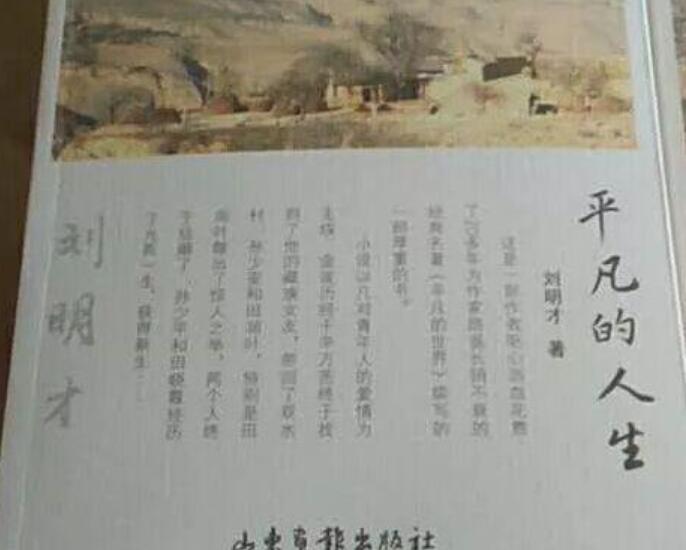 平凡的人生
刘明才 著
这是一部作者呕心沥血花费
了20多年为作家路遥长销不衰的
经典名著《平凡的世界》续写的
一部厚重的书。
小说以几对青年人的爱情为
主线，金波历经千辛万苦终于找
到了他的藏族女友，带回了双水
村，孙少安和田润叶，特别是田
润叶做出了惊人之举，两个人终
于结婚了，孙少平和田晓霞经历
了九死一生，获得新生……
刘明才
山东画报出版社